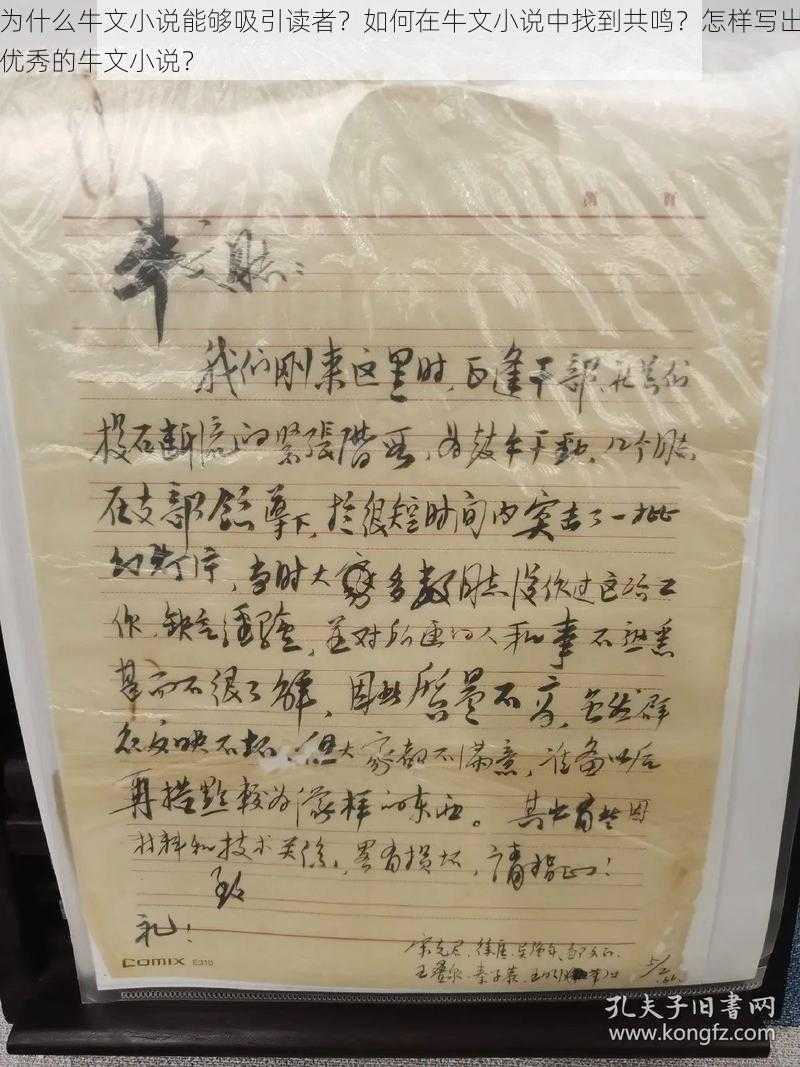 为什么牛文小说能够吸引读者？如何在牛文小说中找到共鸣？怎样写出
优秀的牛文小说？
牛文同志：
我们刚来这里时，正逢干部
投石断流的紧张阶段，为鼓干劲，几个同志
在支部领导下，于很短时间内突击了一批
幻灯片，当时大家多数同志没作过这份工
作，缺乏经验，且对所画的人和事不熟悉
甚而不很了解，因此质量不高，虽然群
众反映不坏，但大家都不满意，准备以后
再搞点较为像样的东西。其中有些因
材料和技术关系，略有损坏，请指正！
致
礼！
COMIX E310
孔夫子旧书网
www.kongfz.com